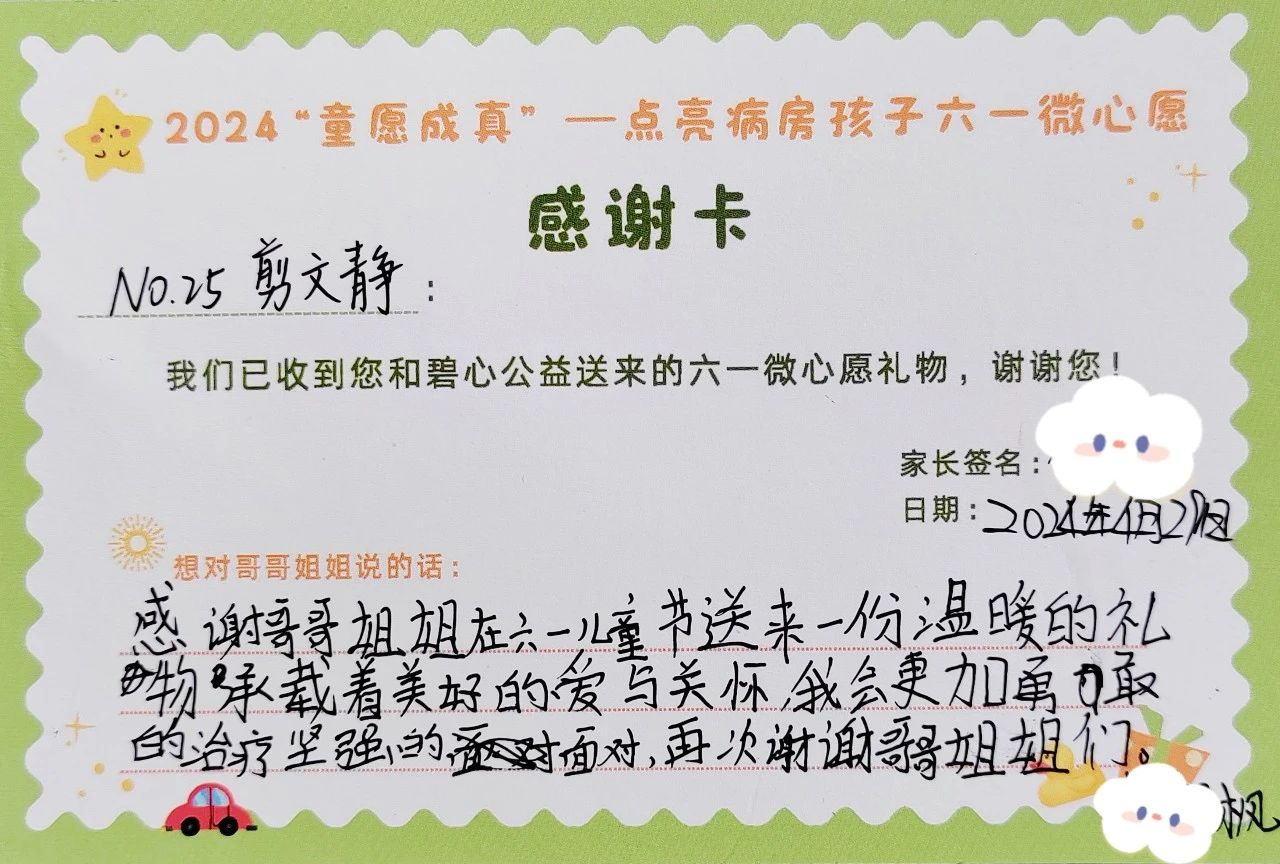 2024“童愿成真”——点亮病房孩子六一微心愿
感谢卡
No.25 剪文静:
我们已收到您和碧心公益送来的六一微心愿礼物，谢谢您！
家长签名:
日期:2024年4月29日
想对哥哥姐姐说的话:
感谢哥哥姐姐在六一儿童节送来一份温暖的礼
物承载着美好的爱与关怀,我会更加勇敢
的治疗坚强的面对,再次谢谢哥哥姐姐们。
枫